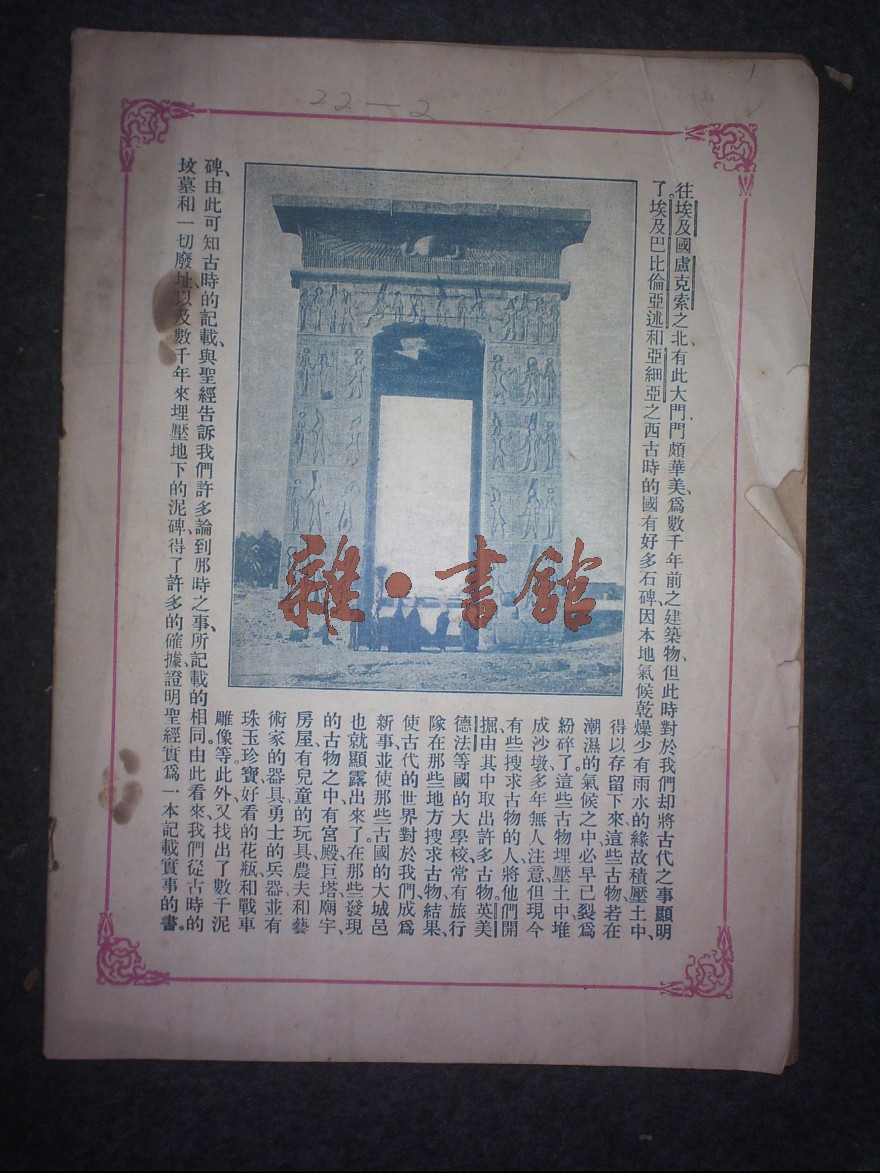 22—2
往埃及國盧克索之北、有此大門、門頗華美、爲數千年前之建築物、但此時對於我們却將古代之事顯明
了。埃及巴比倫亞述和亞細亞之西、古時的國有好多石碑、因本地氣候乾燥少有雨水的緣故、積壓土中、
得以存留下來、這些古物、若在
潮濕的氣候之中、必早已裂爲
紛碎了。這些古物埋壓土中堆
成沙墩、多年無人注意、但現今
有些搜求古物的人將他們開
掘、由其中取出許多古物。英美
德法等國的大學校、常有旅行
隊在那些地方搜求古物、結果、
使古代的世界對於我們、成爲
新事、並使那些古國的大城邑
也就顯露出來了、在那些發現
的古物之中、有宮殿、巨塔、廟宇、
房屋、有兒童的玩具、農夫和藝
術家的器具、勇士的兵器、並有
珠玉珍寶、好看的花瓶和戰車
雕像等。此外、又找出了數千泥
碑、由此可知古時的記載、與聖經告訴我們許多論到那時之事、所記載的相同。由此看來、我們從古時的
坟墓和一切廢址、以及數千年來埋壓地下的泥碑、得了許多的確據、證明聖經實爲一本記載實事的書。
雜·書館